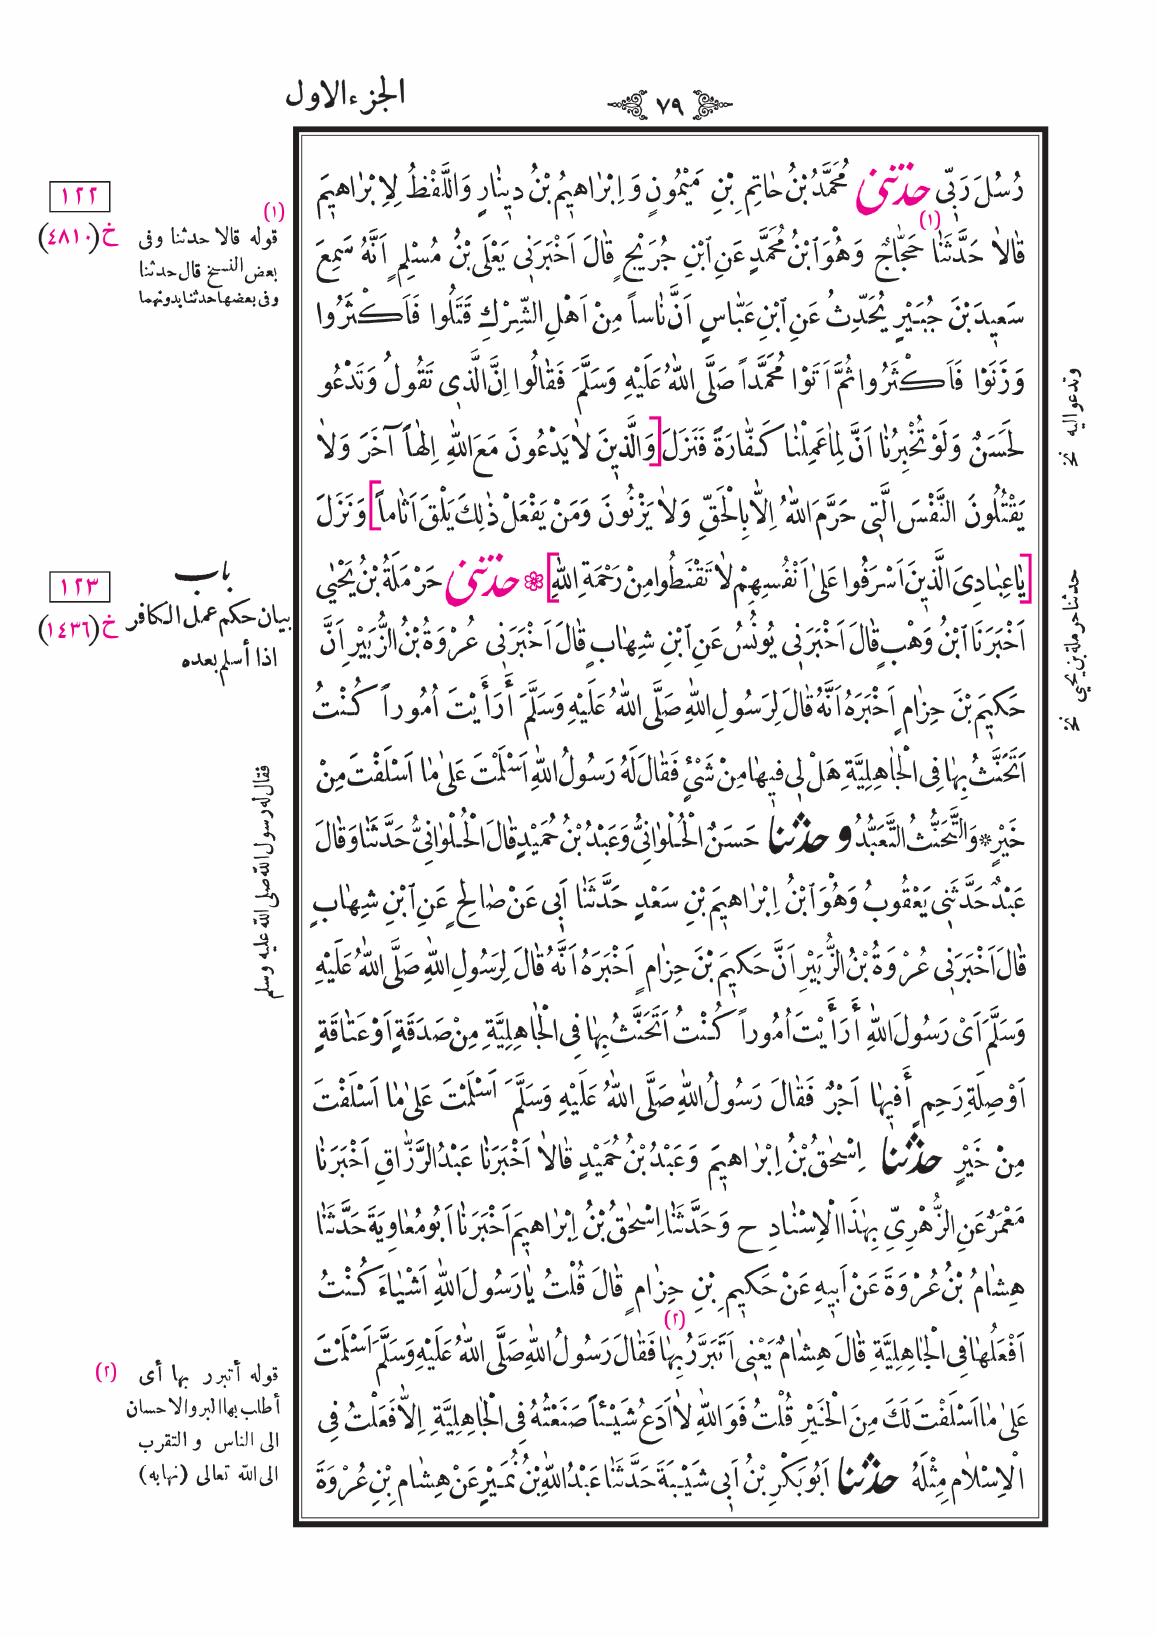 الجزء الاول
٧٩
رُسُلَ رَبّى حَدَّثَنِى مُحَمَّدُ بْنُ حَاتِمِ بْنِ مَيْمُونٍ وَاِبْرَاهِيمُ بْنُ دِينَارٍ وَاللَّفْظُ لِاِبْرَاهِيمَ
قَالاَ حَدَّثَنَا (١) حَجَّاجٌ وَهُوَ ابْنُ مُحَمَّدٍ عَنِ ابْنِ جُرَيْجٍ قَالَ اَخْبَرَنِى يَعْلَى بْنُ مُسْلِمٍ اَنَّهُ سَمِعَ
سَعِيدَ بْنَ جُبَيْرٍ يُحَدِّثُ عَنِ ابْنِ عَبَّاسٍ اَنَّ نَاساً مِنْ اَهْلِ الشِّرْكِ قَتَلُوا فَاَكْثَرُوا
وَزَنَوْا فَاَكْثَرُوا ثُمَّ اَتَوْا مُحَمَّداً صَلَّى اللّٰهُ عَلَيْهِ وَسَلَّمَ فَقَالُوا اِنَّ الَّذِى تَقُولُ وَتَدْعُو
لَحَسَنٌ وَلَوْ تُخْبِرُنَا اَنَّ لِمَا عَمِلْنَا كَفَّارَةً فَنَزَلَ [وَالَّذِينَ لاَ يَدْعُونَ مَعَ اللّٰهِ اِلٰهاً آخَرَ وَلاَ
يَقْتُلُونَ النَّفْسَ الَّتِى حَرَّمَ اللّٰهُ اِلاَّ بِالْحَقِّ وَلاَ يَزْنُونَ وَمَنْ يَفْعَلْ ذٰلِكَ يَلْقَ اَثَاماً] وَنَزَلَ
[يَا عِبَادِىَ الَّذِينَ اَسْرَفُوا عَلَى اَنْفُسِهِمْ لاَ تَقْنَطُوا مِنْ رَحْمَةِ اللّٰهِ] ❁ حَدَّثَنِى حَرْمَلَةُ بْنُ يَحْيَى
اَخْبَرَنَا ابْنُ وَهْبٍ قَالَ اَخْبَرَنِى يُونُسُ عَنِ ابْنِ شِهَابٍ قَالَ اَخْبَرَنِى عُرْوَةُ بْنُ الزُّبَيْرِ اَنَّ
حَكِيمَ بْنَ حِزَامٍ اَخْبَرَهُ اَنَّهُ قَالَ لِرَسُولِ اللّٰهِ صَلَّى اللّٰهُ عَلَيْهِ وَسَلَّمَ أَرَأَيْتَ اُمُوراً كُنْتُ
اَتَحَنَّثُ بِهَا فِى الْجَاهِلِيَّةِ هَلْ لِى فِيهَا مِنْ شَىْءٍ فَقَالَ لَهُ رَسُولُ اللّٰهِ اَسْلَمْتَ عَلَى مَا اَسْلَفْتَ مِنْ
خَيْرٍ * وَالتَّحَنُّثُ التَّعَبُّدُ و حَدَّثَنَا حَسَنٌ الْحُلْوَانِىُّ وَعَبْدُ بْنُ حُمَيْدٍ قَالَ الْحُلْوَانِىُّ حَدَّثَنَا وَقَالَ
عَبْدٌ حَدَّثَنِى يَعْقُوبُ وَهُوَ ابْنُ اِبْرَاهِيمَ بْنِ سَعْدٍ حَدَّثَنَا اَبِى عَنْ صَالِحٍ عَنِ ابْنِ شِهَابٍ
قَالَ اَخْبَرَنِى عُرْوَةُ بْنُ الزُّبَيْرِ اَنَّ حَكِيمَ بْنَ حِزَامٍ اَخْبَرَهُ اَنَّهُ قَالَ لِرَسُولِ اللّٰهِ صَلَّى اللّٰهُ عَلَيْهِ
وَسَلَّمَ اَىْ رَسُولَ اللّٰهِ أَرَأَيْتَ اُمُوراً كُنْتُ اَتَحَنَّثُ بِهَا فِى الْجَاهِلِيَّةِ مِنْ صَدَقَةٍ اَوْ عَتَاقَةٍ
اَوْ صِلَةِ رَحِمٍ أَفِيهَا اَجْرٌ فَقَالَ رَسُولُ اللّٰهِ صَلَّى اللّٰهُ عَلَيْهِ وَسَلَّمَ اَسْلَمْتَ عَلَى مَا اَسْلَفْتَ
مِنْ خَيْرٍ حَدَّثَنَا اِسْحٰقُ بْنُ اِبْرَاهِيمَ وَعَبْدُ بْنُ حُمَيْدٍ قَالاَ اَخْبَرَنَا عَبْدُ الرَّزَّاقِ اَخْبَرَنَا
مَعْمَرٌ عَنِ الزُّهْرِىِّ بِهٰذَا الْاِسْنَادِ ح وَحَدَّثَنَا اِسْحٰقُ بْنُ اِبْرَاهِيمَ اَخْبَرَنَا اَبُو مُعَاوِيَةَ حَدَّثَنَا
هِشَامُ بْنُ عُرْوَةَ عَنْ اَبِيهِ عَنْ حَكِيمِ بْنِ حِزَامٍ قَالَ قُلْتُ يَا رَسُولَ اللّٰهِ اَشْيَاءَ كُنْتُ
اَفْعَلُهَا فِى الْجَاهِلِيَّةِ قَالَ هِشَامٌ يَعْنِى اَتَبَرَّرُ بِهَا (٢) فَقَالَ رَسُولُ اللّٰهِ صَلَّى اللّٰهُ عَلَيْهِ وَسَلَّمَ اَسْلَمْتَ
عَلَى مَا اَسْلَفْتَ لَكَ مِنَ الْخَيْرِ قُلْتُ فَوَاللّٰهِ لاَ اَدَعُ شَيْئاً صَنَعْتُهُ فِى الْجَاهِلِيَّةِ اِلاَّ فَعَلْتُ فِى
الْاِسْلاَمِ مِثْلَهُ حَدَّثَنَا اَبُو بَكْرِ بْنُ اَبِى شَيْبَةَ حَدَّثَنَا عَبْدُ اللّٰهِ بْنُ نُمَيْرٍ عَنْ هِشَامِ بْنِ عُرْوَةَ
وتدعو اليه نخ
حدثنا حرملة بن يحيى نخ
١٢٢
خ (٤٨١٠)
(١)
قوله قالا حدثنا وفى
بعض النسخ قال حدثنا
وفى بعضها حدثنا بدونهما
١٢٣
خ (١٤٣٦)
باب
بيان حكم عمل الكافر
اذا أسلم بعده
فقال له رسول اللّٰه صلى اللّٰه عليه وسلم
(٢)
قوله أتبرر بها أى
أطلب بها البر والاحسان
الى الناس والتقرب
الى اللّٰه تعالى (نهايه)